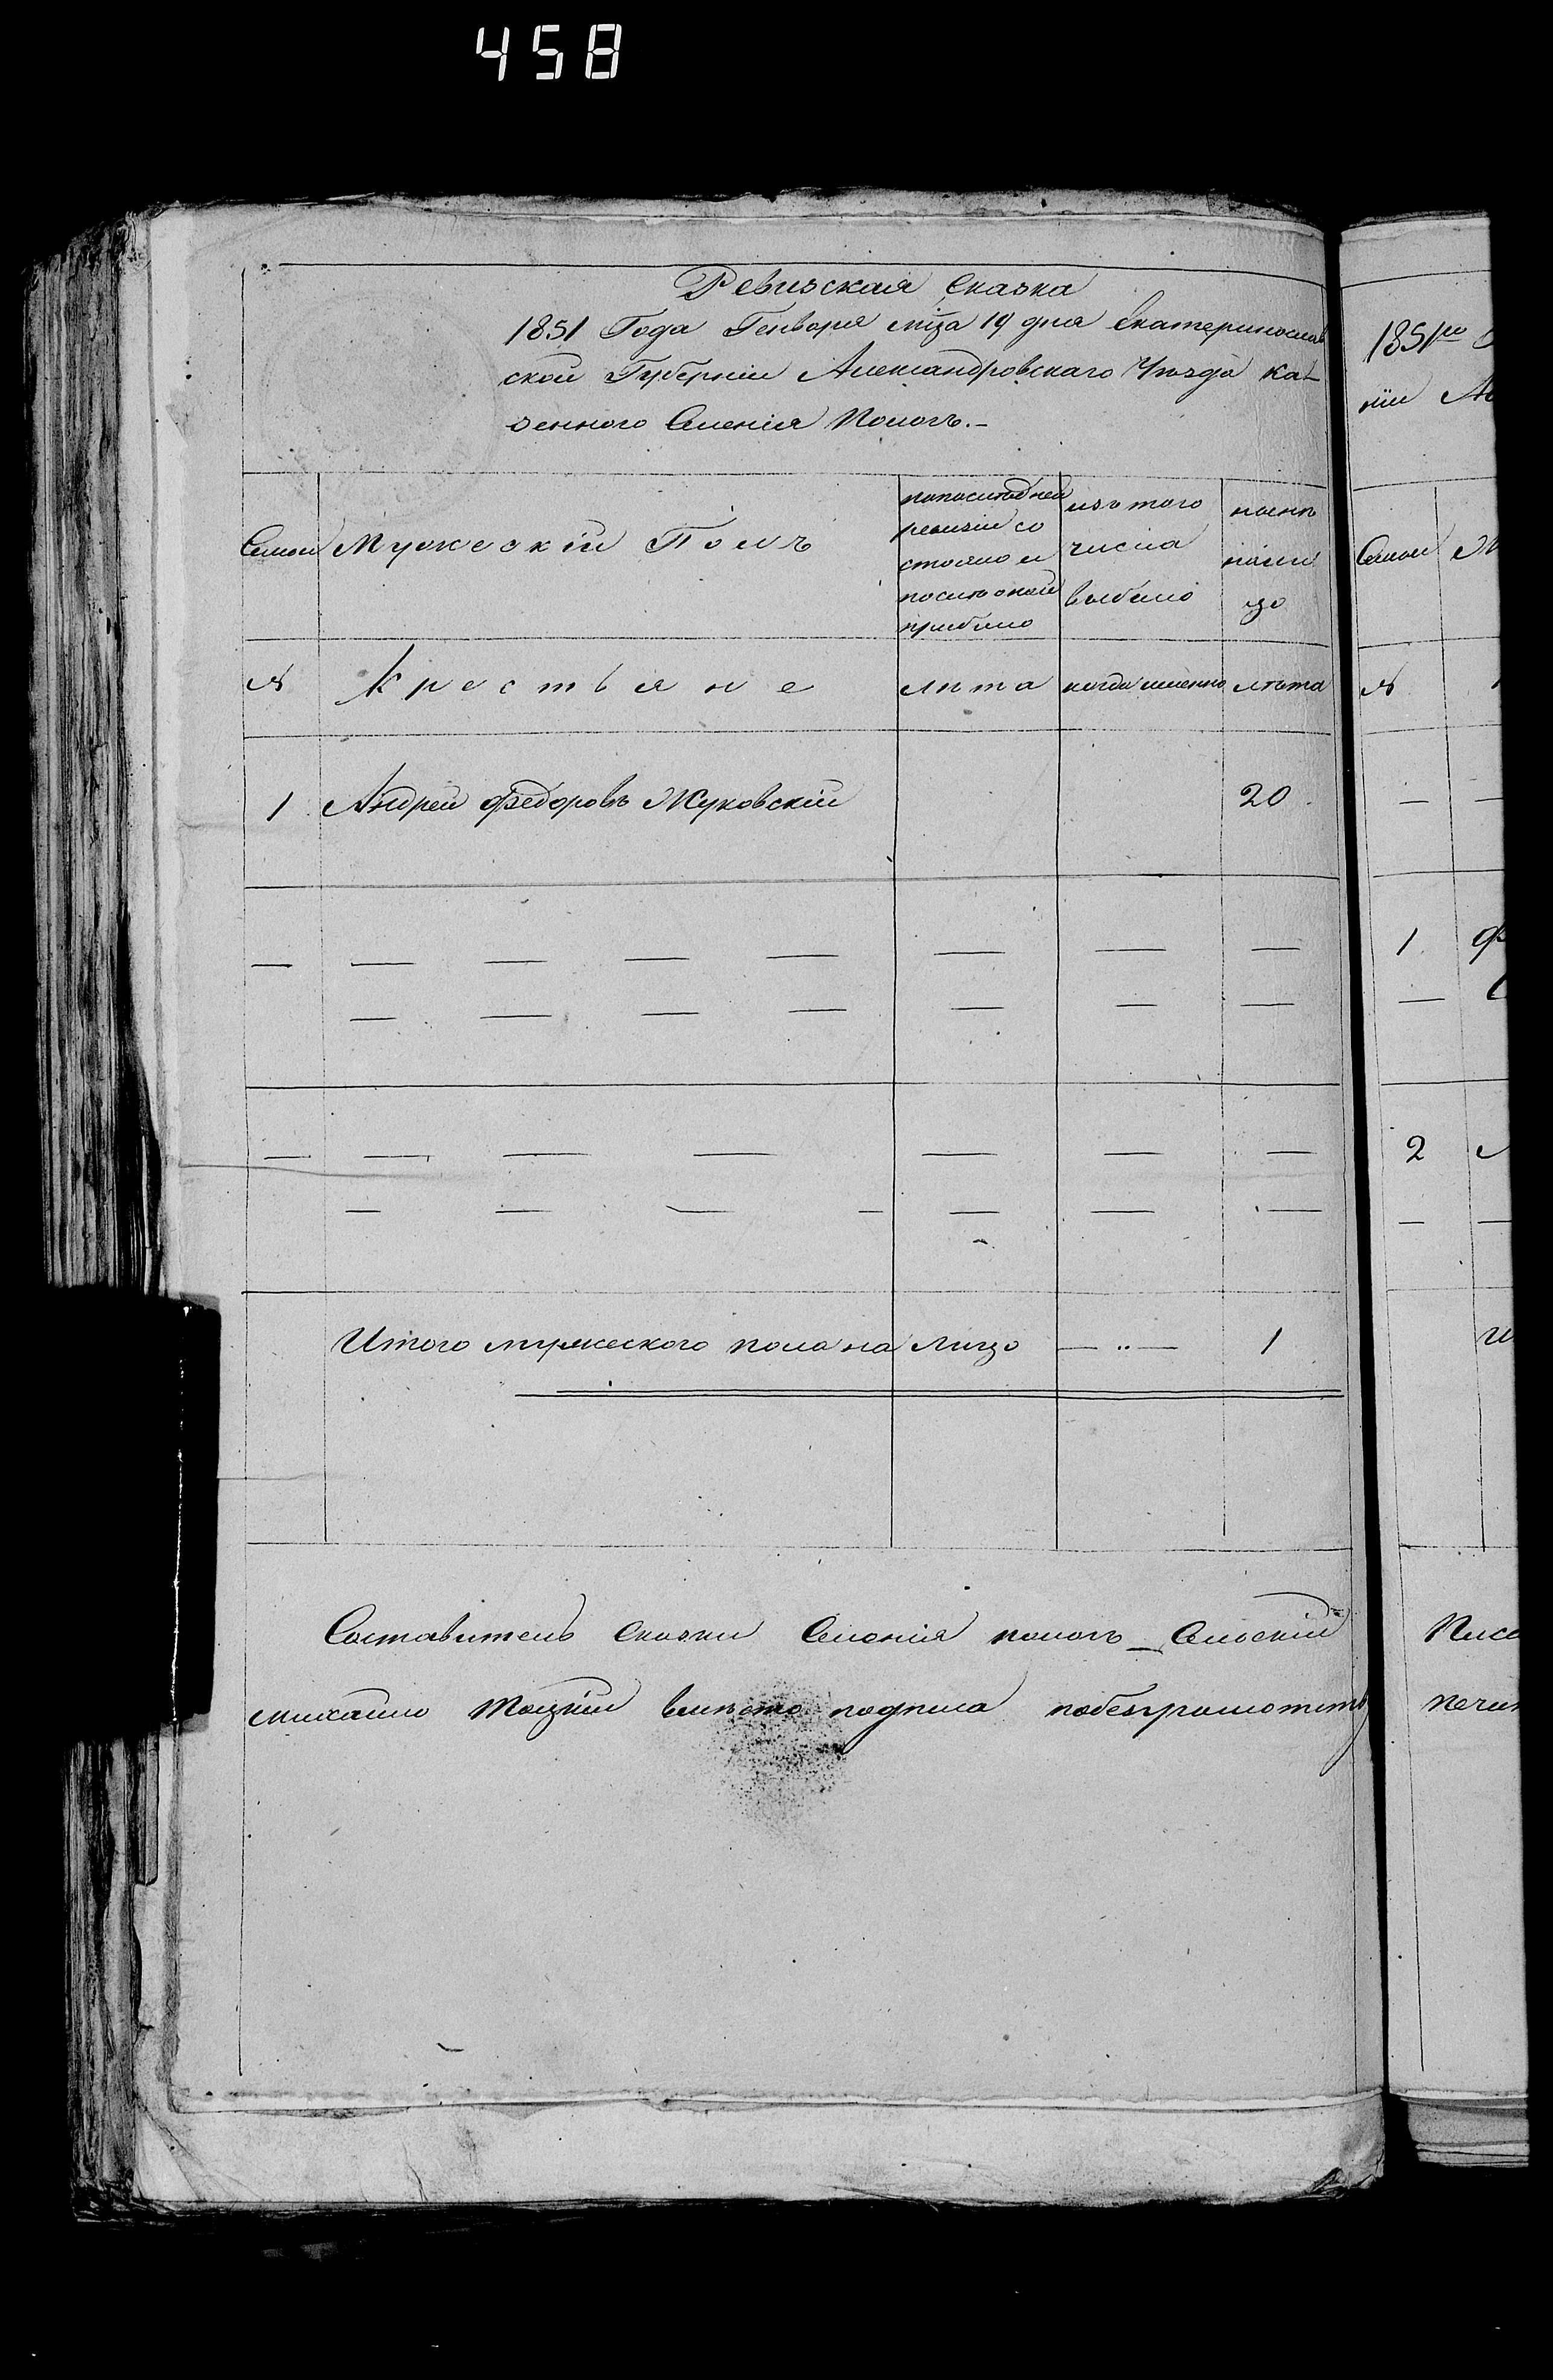 458
Ревизская Сказка
1851 Года Генваря мца 19 дня Екатеринослав
ской Губерніи Александровскаго Уъзда ка-
зенного Селенія Пологъ.-
Семьи
Мужескій Полъ
попоследней
ревизіи со
стояло и
после оной
прибыло
изъ того
числа
выбыло
ныне
нали
цо
№
Крестьяне
лѣта
когда именно
лѣта
1
Андрей Федоровъ Жуковскій
20
Итого мужеского пола на лицо
1
Составитель Сказки Селенія пологъ Сельскій
михайло Тоцкій вместо подписа побезграмотству
1851го
ніи
Семьи
№
1
2